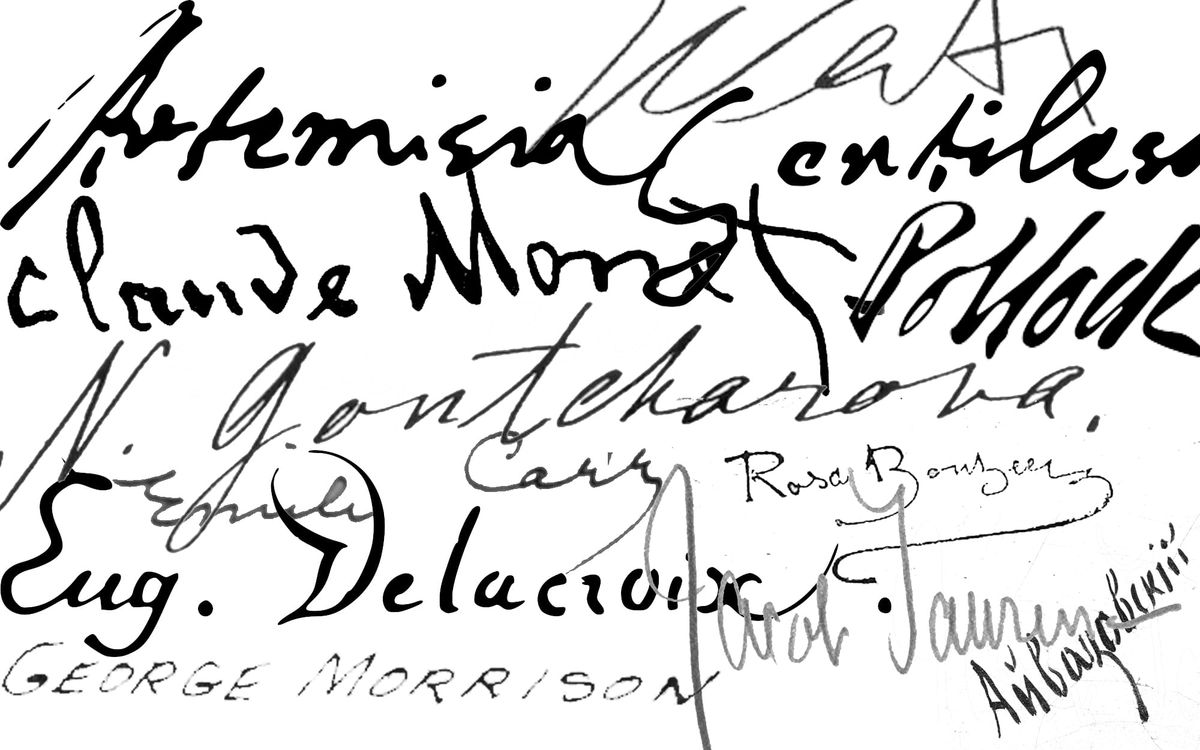 Artemisia Gentilesc
Claude Monet
Pollock
N. Gontcharova.
Emily Carr
Rosa Bonheur
Eug. Delacroix.
Jacob Lawrence
Айвазовскій
GEORGE MORRISON